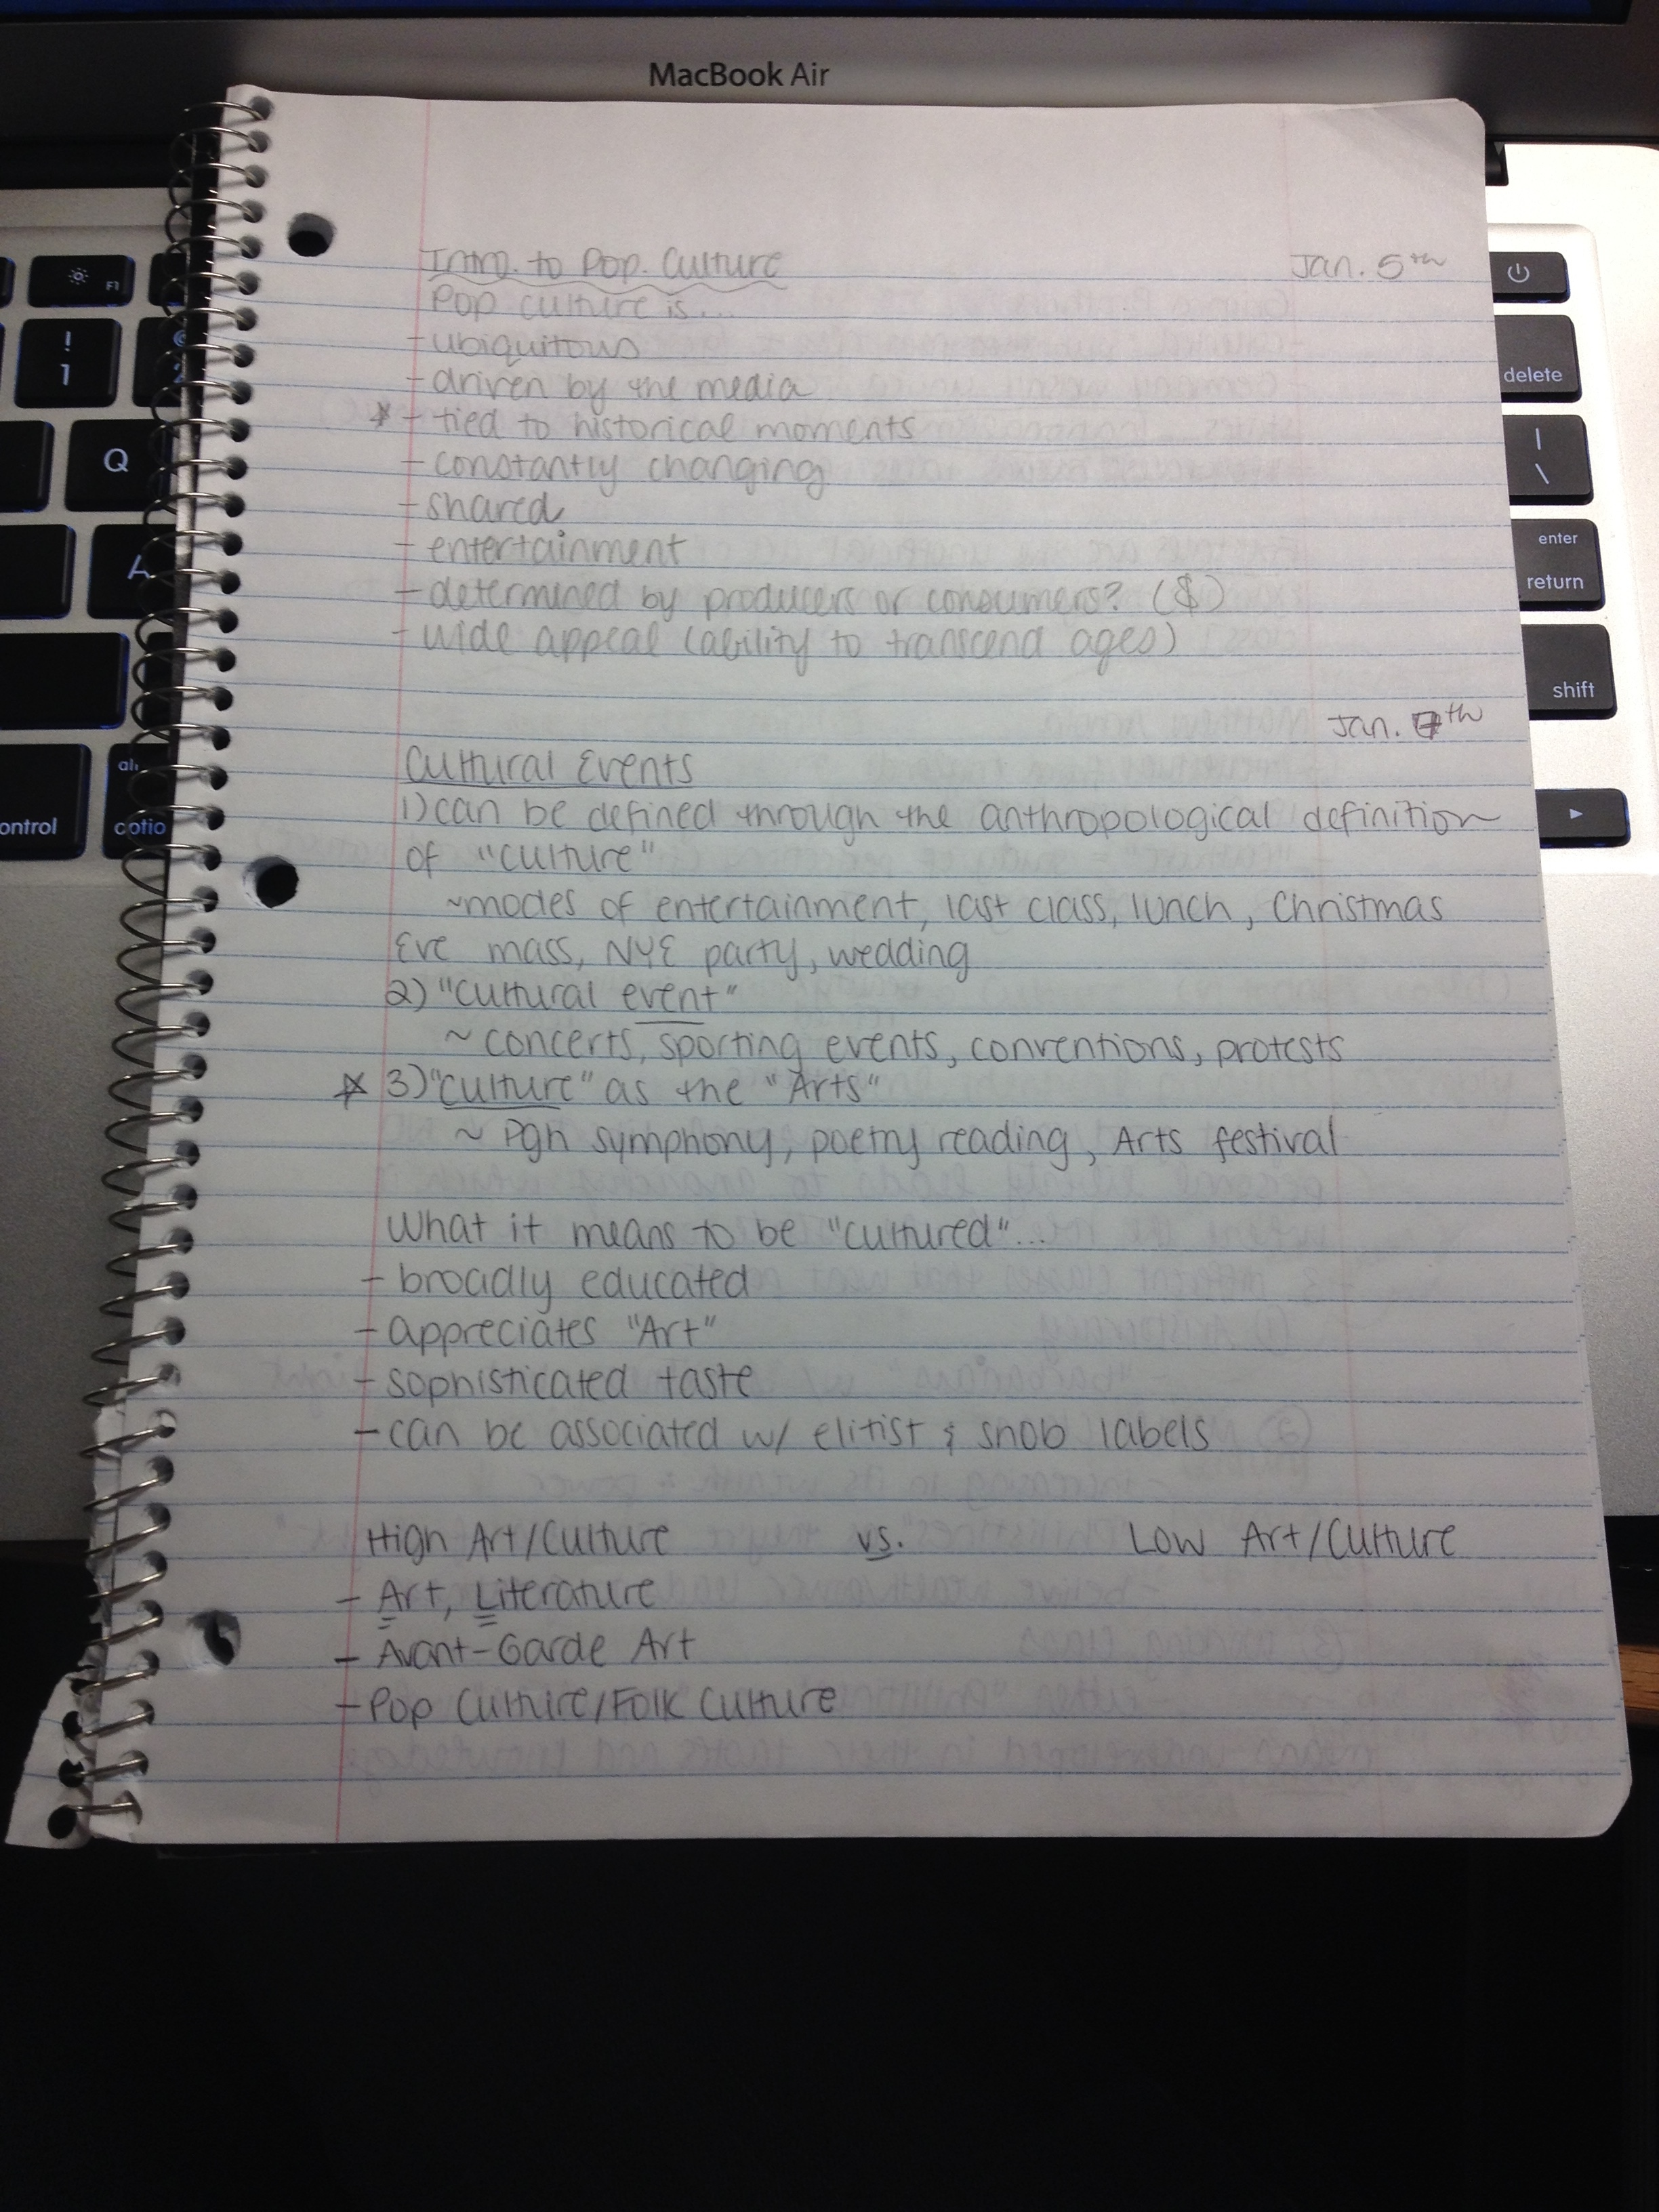 MacBook Air
Intro. to Pop. Culture Jan. 5th
Pop culture is...
- ubiquitous
- driven by the media
* - tied to historical moments
- constantly changing
- shared
- entertainment
- determined by producers or consumers? ($)
- wide appeal (ability to transcend ages)
Jan. 7th
Cultural Events
1) can be defined through the anthropological definition
of "culture"
~modes of entertainment, last class, lunch, Christmas
Eve mass, NYE party, wedding
2) "cultural event"
~ concerts, sporting events, conventions, protests
* 3) "culture" as the "Arts"
~ Pgh symphony, poetry reading, Arts festival
What it means to be "cultured"...
- broadly educated
- appreciates "Art"
- sophisticated taste
- can be associated w/ elitist & snob labels
High Art/Culture vs. Low Art/Culture
- Art, Literature
- Avant-Garde Art
- Pop Culture/Folk Culture
F1
!
1
2
Q
A
alt
control
optio
delete
|
\
enter
return
shift